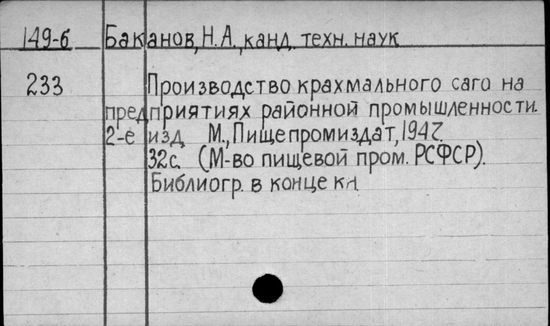 149-б Баканов, Н.А., канд. техн. наук
233 Производство крахмального саго на
предприятиях районной промышленности.
2-е изд М., Пищепромиздат, 1947.
32с. (М-во пищевой пром. РСФСР).
Библиогр. в конце кн